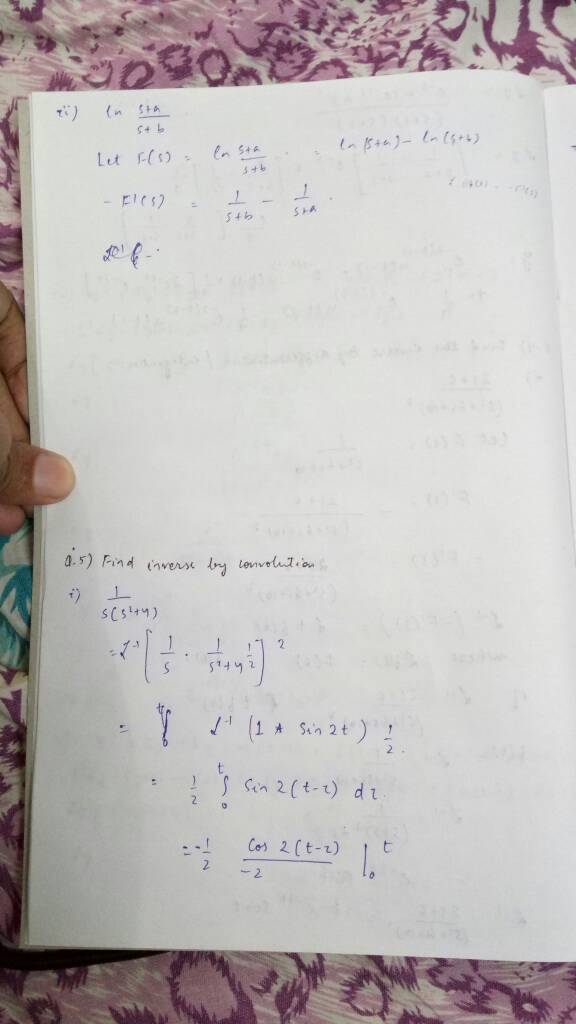 ii) ln (s+a)/(s+b)
Let F(s) = ln (s+a)/(s+b) = ln (s+a) - ln (s+b)
- F'(s) = 1/(s+b) - 1/(s+a).
Q.5) Find inverse by convolution
i) 1/(s(s²+4))
= L⁻¹ [ 1/s · 1/(s²+4) 1/2 ] 2
= L⁻¹ (1 * sin 2t) 1/2.
= 1/2 ∫₀ᵗ sin 2(t-τ) dτ.
= -1/2 cos 2(t-τ)/-2 |₀ᵗ